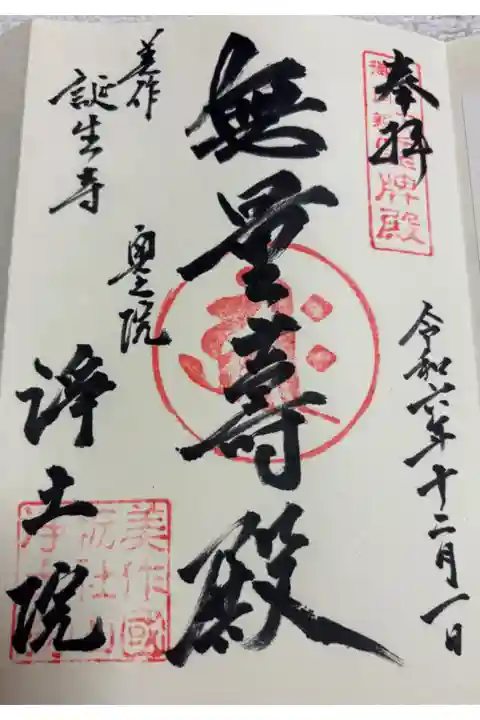 奉拝
令和六年十二月一日
無量壽殿
美作
誕生寺
奥之院
浄土院
牌殿
美作國